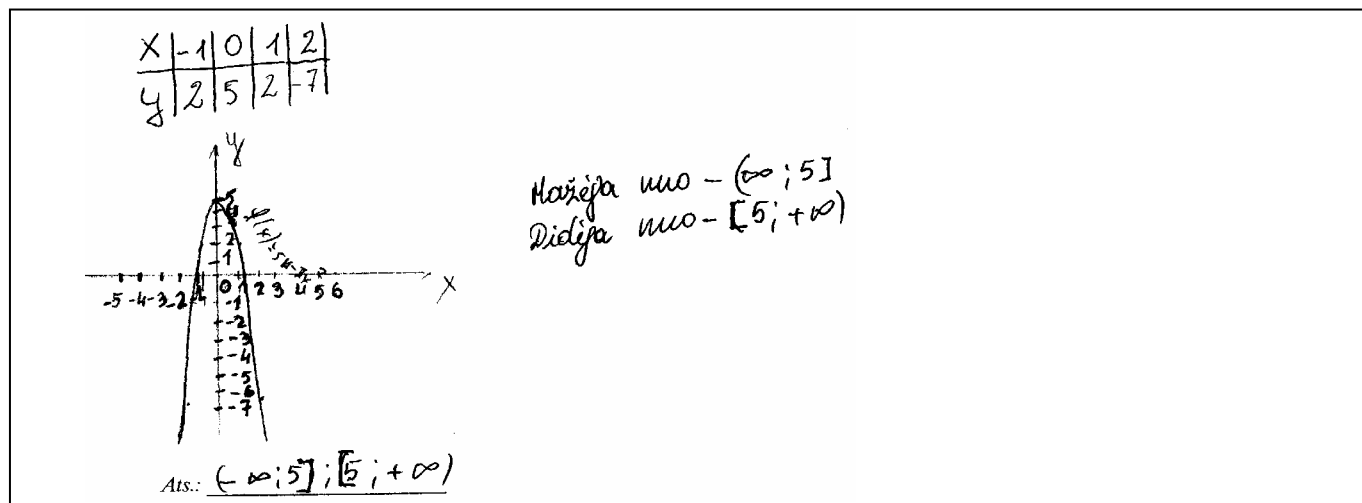 X | -1 | 0 | 1 | 2
y | 2 | 5 | 2 | -7
y
5
4
3
2
1
-5 -4 -3 -2 -1 0 1 2 3 4 5 6
X
-1
-2
-3
-4
-5
-6
-7
Mažėja nuo - (∞ ; 5]
Didėja nuo - [5 ; +∞)
Ats.: (-∞; 5] ; [5 ; +∞)